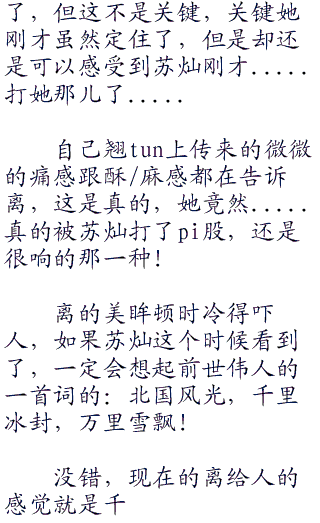 了，但这不是关键，关键她
刚才虽然定住了，但是却还
是可以感受到苏灿刚才.....
打她那儿了.....
自己翘tun上传来的微微
的痛感跟酥/麻感都在告诉
离，这是真的，她竟然.....
真的被苏灿打了pi股，还是
很响的那一种！
离的美眸顿时冷得吓
人，如果苏灿这个时候看到
了，一定会想起前世伟人的
一首词的：北国风光，千里
冰封，万里雪飘！
没错，现在的离给人的
感觉就是千